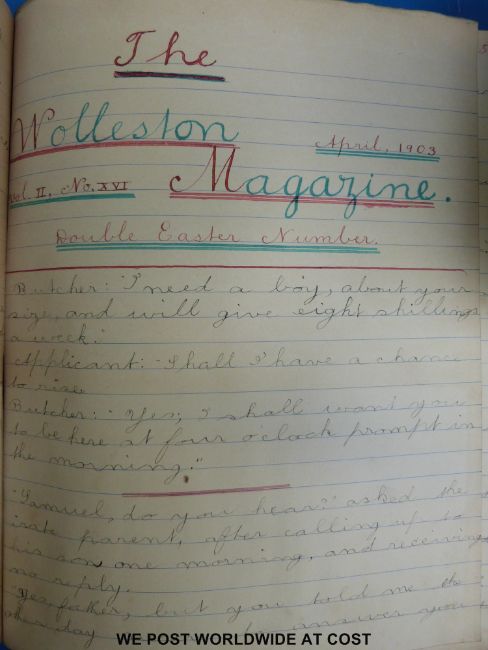 The
Wolleston
April. 1903
Vol. II. No. XVI
Magazine.
Double Easter Number.
Butcher: "I need a boy, about your
size, and will give eight shillings
a week."
Applicant: "Shall I have a chance
to rise
Butcher: "Yes; I shall want you
to be here at four o'clock prompt in
the morning."
"Samuel, do you hear?" asked the
irate parent, after calling up to
his son one morning, and receiving
no reply.
"Yes father, but you told me the
other day answer you
WE POST WORLDWIDE AT COST